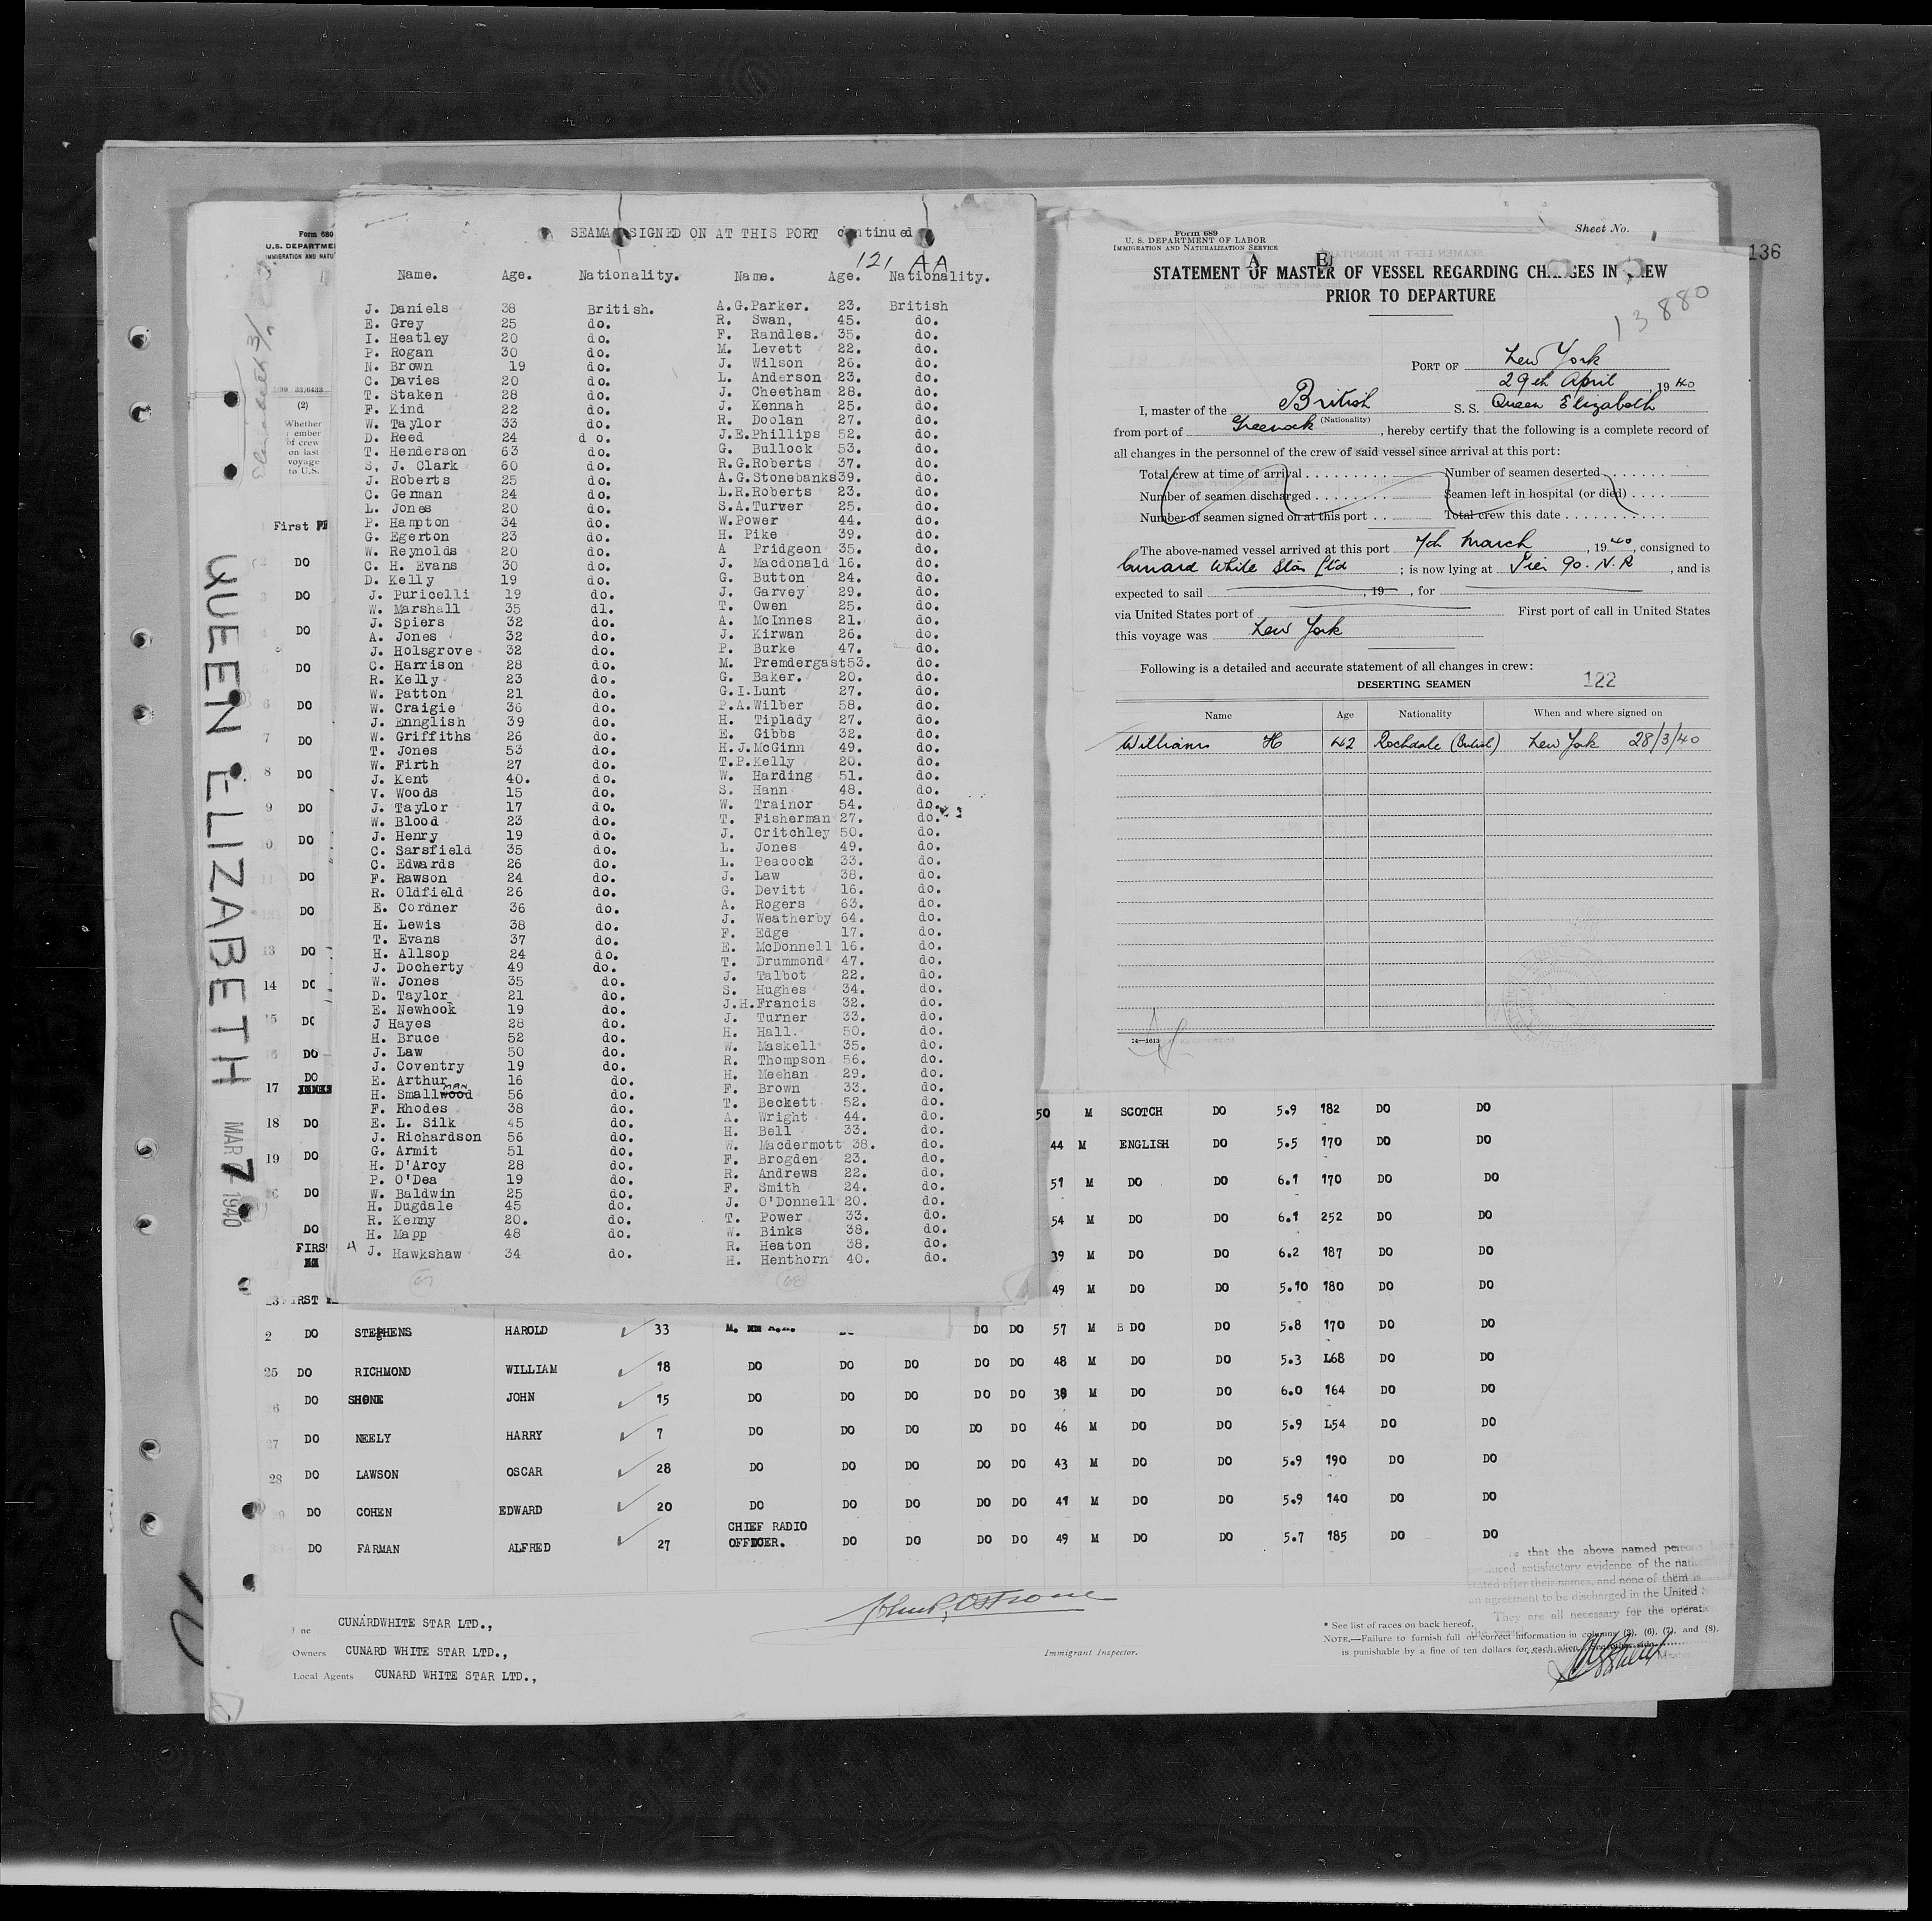 QUEEN ELIZABETH
MAR 7 1940
Form 680
U.S. DEPARTME
IMMIGRATION AND NATU
(2)
Whether
ember
of crew
on last
voyage
to U.S.
SEAMAN SIGNED ON AT THIS PORT continued
121 AA
Name. Age. Nationality.
J. Daniels 38 British.
E. Grey 25 do.
I. Heatley 20 do.
P. Rogan 30 do.
N. Brown 19 do.
C. Davies 20 do.
T. Staken 28 do.
F. Kind 22 do.
W. Taylor 33 do.
D. Reed 24 d o.
T. Henderson 63 do.
S, J. Clark 60 do.
J. Roberts 25 do.
C. German 24 do.
L. Jones 20 do.
P. Hampton 34 do.
G. Egerton 23 do.
W. Reynolds 20 do.
C. H. Evans 30 do.
D. Kelly 19 do.
J. Puricelli 19 do.
W. Marshall 35 dl.
J. Spiers 32 do.
A. Jones 32 do.
J. Holsgrove 32 do.
C. Harrison 28 do.
R. Kelly 23 do.
W. Patton 21 do.
W. Craigie 36 do.
J. Ennglish 39 do.
W. Griffiths 26 do.
T. Jones 53 do.
W. Firth 27 do.
J. Kent 40. do.
V. Woods 15 do.
J. Taylor 17 do.
W. Blood 23 do.
J. Henry 19 do.
C. Sarsfield 35 do.
C. Edwards 26 do.
F. Rawson 24 do.
R. Oldfield 26 do.
E. Cordner 36 do.
H. Lewis 38 do.
T. Evans 37 do.
H. Allsop 24 do.
J. Docherty 49 do.
W. Jones 35 do.
D. Taylor 21 do.
E. Newhook 19 do.
J Hayes 28 do.
H. Bruce 52 do.
J. Law 50 do.
J. Coventry 19 do.
E. Arthur 16 do.
MAN
H. Smallwood 56 do.
F. Rhodes 38 do.
E. L. Silk 45 do.
J. Richardson 56 do.
G. Armit 51 do.
H. D'Arcy 28 do.
P. O'Dea 19 do.
W. Baldwin 25 do.
H. Dugdale 45 do.
R. Kenny 20. do.
H. Mapp 48 do.
J. Hawkshaw 34 do.
67
Name. Age. Nationality.
A.G.Parker. 23. British
R. Swan, 45. do.
F. Randles. 35. do.
M. Levett 22. do.
J. Wilson 26. do.
L. Anderson 23. do.
J. Cheetham 28. do.
J. Kennah 25. do.
R. Doolan 27. do.
J.E.Phillips 52. do.
G. Bullock 53. do.
R.G.Roberts 37. do.
A.G.Stonebanks39. do.
L.R.Roberts 23. do.
S.A.Turver 25. do.
W.Power 44. do.
H. Pike 39. do.
A Pridgeon 35. do.
J. Macdonald 16. do.
G. Button 24. do.
J. Garvey 29. do.
T. Owen 25. do.
A. McInnes 21. do.
J. Kirwan 26. do.
P. Burke 47. do.
M. Premdergast53. do.
G. Baker. 20. do.
G.I.Lunt 27. do.
P.A.Wilber 58. do.
H. Tiplady 27. do.
E. Gibbs 32. do.
H.J.McGinn 49. do.
T.P.Kelly 20. do.
W. Harding 51. do.
S. Hann 48. do.
W. Trainor 54. do.
T. Fisherman 27. do.
J. Critchley 50. do.
L. Jones 49. do.
L. Peacock 33. do.
J. Law 38. do.
G. Devitt 16. do.
A. Rogers 63. do.
J. Weatherby 64. do.
F. Edge 17. do.
E. McDonnell 16. do.
T. Drummond 47. do.
J. Talbot 22. do.
S. Hughes 34. do.
J.H.Francis 32. do.
J. Turner 33. do.
H. Hall. 50. do.
W. Maskell 35. do.
R. Thompson 56. do.
H. Meehan 29. do.
F. Brown 33. do.
T. Beckett 52. do.
A. Wright 44. do.
H. Bell 33. do.
W. Macdermott 38. do.
F. Brogden 23. do.
R. Andrews 22. do.
F. Smith 24. do.
J. O'Donnell 20. do.
T. Power 33. do.
W. Binks 38. do.
R. Heaton 38. do.
H. Henthorn 40. do.
68
Form 689
U. S. DEPARTMENT OF LABOR
IMMIGRATION AND NATURALIZATION SERVICE
Sheet No. 1
136
STATEMENT OF MASTER OF VESSEL REGARDING CHANGES IN CREW
PRIOR TO DEPARTURE
13880
PORT OF New York
29th April, 1940
I, master of the British S. S. Queen Elizabeth
(Nationality)
from port of Greenock, hereby certify that the following is a complete record of
all changes in the personnel of the crew of said vessel since arrival at this port:
Total crew at time of arrival Number of seamen deserted
Number of seamen discharged Seamen left in hospital (or died)
Number of seamen signed on at this port Total crew this date
The above-named vessel arrived at this port 7th March, 1940, consigned to
Cunard White Star Ltd; is now lying at Pier 90. N.R, and is
expected to sail, 19, for
via United States port of First port of call in United States
this voyage was New York
Following is a detailed and accurate statement of all changes in crew:
DESERTING SEAMEN 122
Name Age Nationality When and where signed on
Williams H 42 Rochdale (British) New York 28/3/40
14—1613
50 M SCOTCH DO 5.9 182 DO DO
44 M ENGLISH DO 5.5 170 DO DO
51 M DO DO 6.1 170 DO DO
54 M DO DO 6.1 252 DO DO
39 M DO DO 6.2 187 DO DO
49 M DO DO 5.10 180 DO DO
2 DO STEPHENS HAROLD 33 DO DO 57 M B DO DO 5.8 170 DO DO
25 DO RICHMOND WILLIAM 18 DO DO DO DO DO 48 M DO DO 5.3 L68 DO DO
6 DO SHONE JOHN 15 DO DO DO DO DO 38 M DO DO 6.0 164 DO DO
27 DO NEELY HARRY 7 DO DO DO DO DO 46 M DO DO 5.9 L54 DO DO
28 DO LAWSON OSCAR 28 DO DO DO DO DO 43 M DO DO 5.9 190 DO DO
DO COHEN EDWARD 20 DO DO DO DO DO 41 M DO DO 5.9 140 DO DO
DO FARMAN ALFRED 27 CHIEF RADIO OFFICER. DO DO DO DO 49 M DO DO 5.7 185 DO DO
that the above named
satisfactory evidence of the
stated after their names, and none of them is
an agreement to be discharged in the United
They are all necessary for the
CUNARDWHITE STAR LTD.,
Owners CUNARD WHITE STAR LTD.,
Local Agents CUNARD WHITE STAR LTD.,
Immigrant Inspector.
* See list of races on back hereof.
NOTE.—Failure to furnish full or correct information in columns (5), (6), (7), and (8),
is punishable by a fine of ten dollars for each alien.